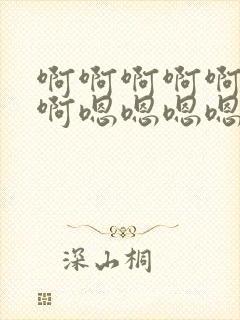 啊啊啊啊啊
啊嗯嗯嗯嗯
深山桐